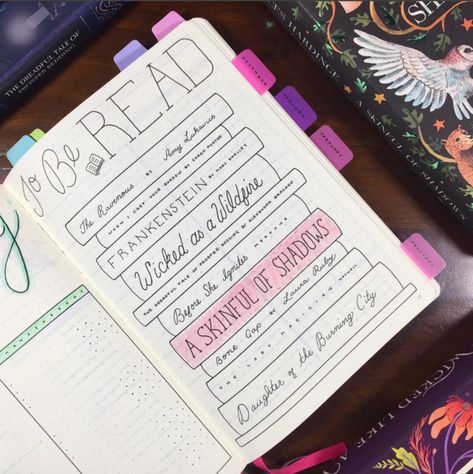 THE DREADFUL TALE OF
PROSPER REDDING
To Be READ
The Ravenous by Amy Lukavics
WHEN I CAST YOUR SHADOW BY SARAH PORTER
FRANKENSTEIN BY MARY SHELLEY
Wicked as a Wildfire
THE DREADFUL TALE OF PROSPER REDDING BY ALEXANDRA BRACKEN
Before She Ignites MEADOWS
A SKINFUL OF SHADOWS
Bone Gap by Laura Ruby
THE LAST MAGICIAN
Daughter of the Burning City
DECEMBER
JANUARY
FEBRUARY
HARDINGE
WICKED LIKE